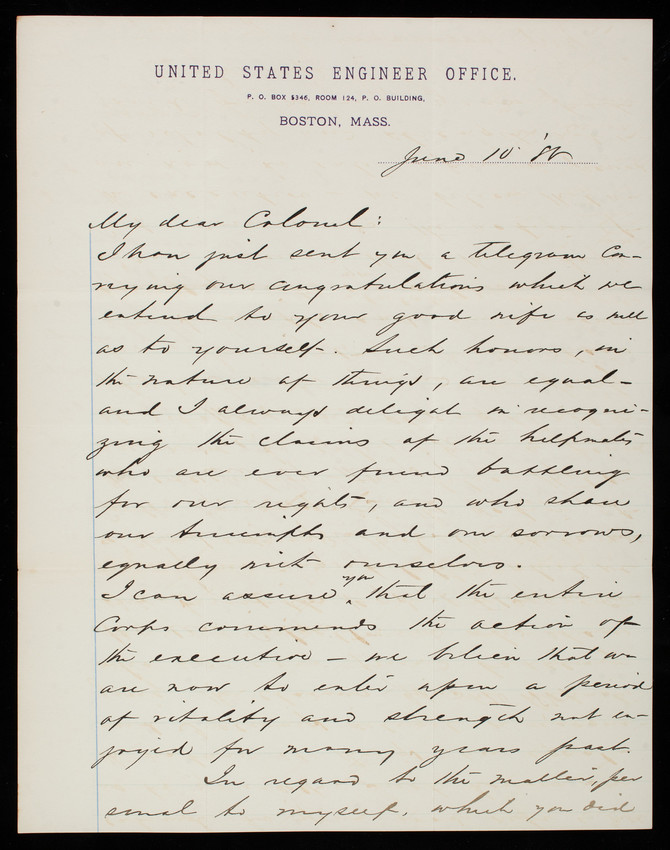 UNITED STATES ENGINEER OFFICE.
P. O. BOX 5346, ROOM 124, P. O. BUILDING,
BOSTON, MASS.
June 10 '8
My dear Colonel:
I have just sent you a telegram con-
veying our congratulations which we
extend to your good wife as well
as to yourself. Such honors, in
the nature of things, are equal -
and I always delight in recogni-
zing the claims of the helpmates
who are ever found battling
for our rights, and who share
our triumphs and our sorrows,
equally with ourselves.
I can assure you that the entire
Corps commends the action of
the executive - we believe that we
are now to enter upon a period
of vitality and strength not en-
joyed for many years past.
In regard to the matter, per
sonal to myself, which you did